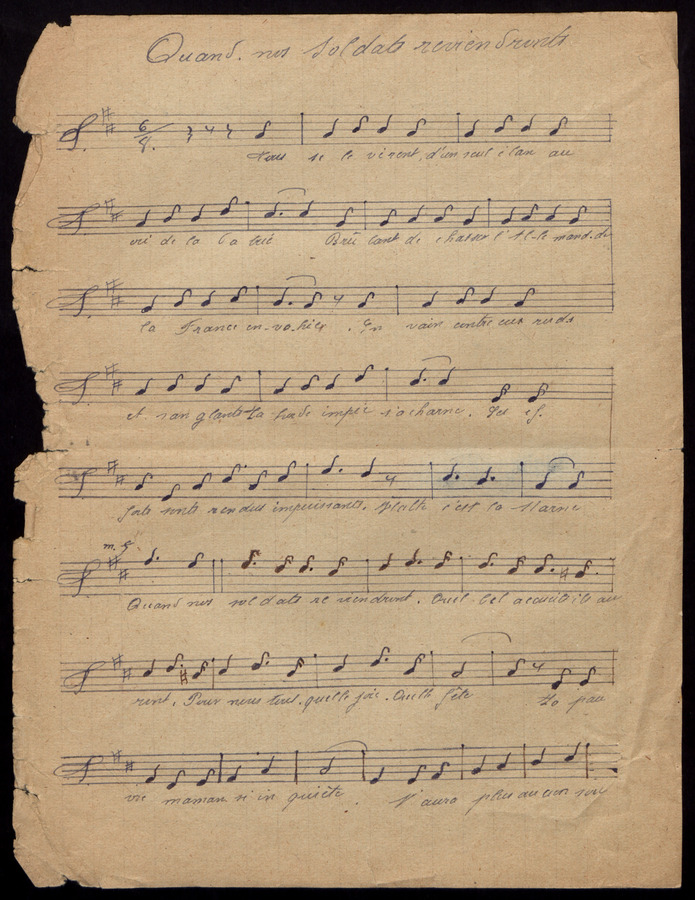 Quand nos soldats reviendronts
6/8.
Tous se le virent, d'un seul élan au
cri de la Pa trie Brû lant de chasser l'Al-le-mand. de
la France en-va-hies. En vain contre eux ruds
et san glants La horde impie s'acharne. Ses ef.
forts sonts rendus impuissants. Halte c'est la Marne
m. f.
Quand nos sol dats re viendront. Quel bel accueil ils au
ront. Pour nous tous. quelle joie. Quelle fête La pau
vre maman si in quiète. N'aura plus aucun sou